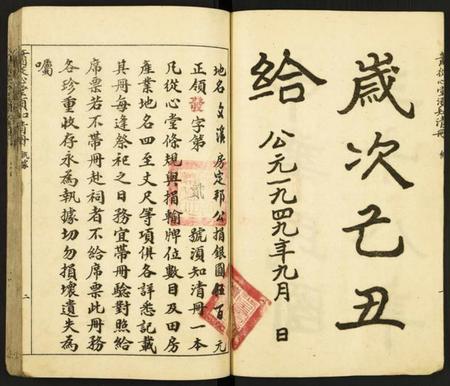 歲次己丑
給
公元一九四九年九月　日
地名 文溪 房定邦公捐銀圓伍百元
正領發字第 貳 號須知清冊一本
凡從心堂條規與捐輸牌位數目及田房
產業地名四至丈尺等項俱各詳悉記載
其冊每逢祭祀之日務宜帶冊驗對照給
席票若不帶冊赴祠者不給席票此冊務
各珍重收存永為執據切勿損壞遺失為
囑
二